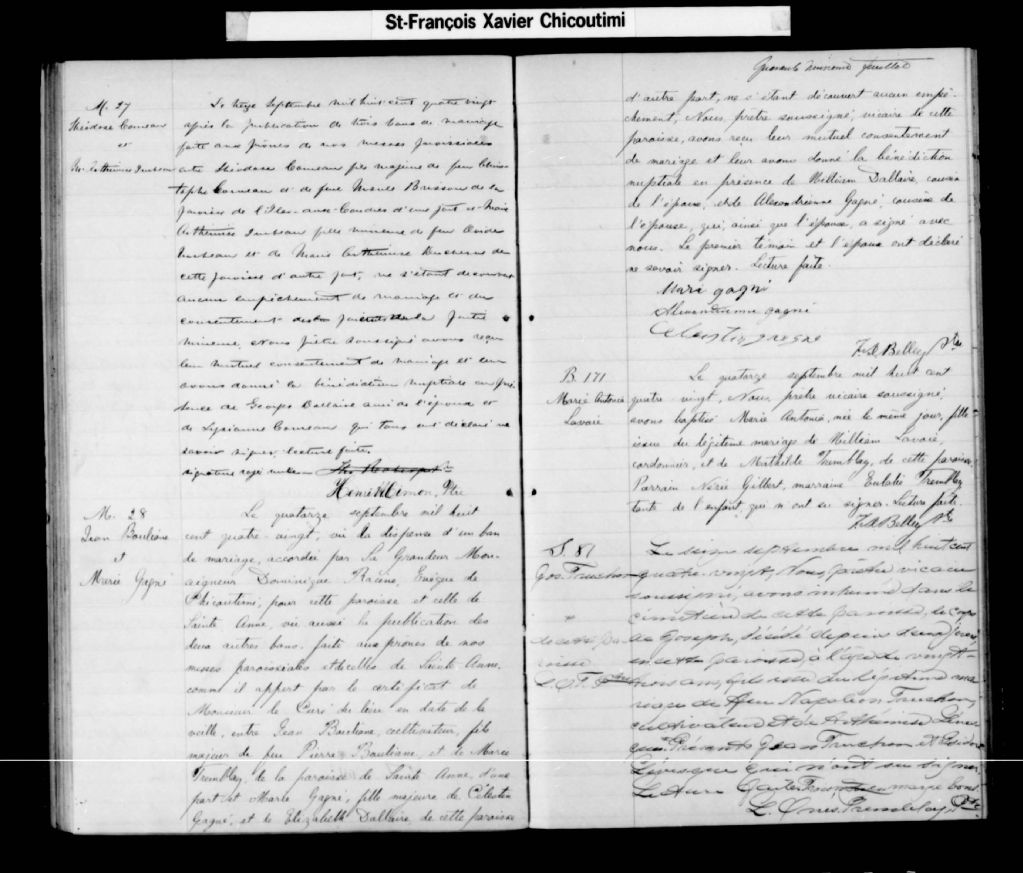 St-François Xavier Chicoutimi
M. 27
Théodose Comeau
et
M. Arthémise Imbeau
Le treize Septembre mil huit cent quatre vingt
après la publication de trois bans de mariage
faite aux prônes de nos messes paroissiales
entre Théodose Comeau fils majeur de feu Chris
tophe Comeau et de feue Brisson de la
Paroisse de l'Isle-aux-Coudres d'une part et Marie
Arthémise Imbeau fille mineure de feu
Imbeau et de Marie Arthémise Duchesne de
cette paroisse d'autre part, ne s'étant découvert
aucun empêchement de mariage et du
consentement de la partie
mineure, Nous Prêtre soussigné avons reçu
leur mutuel consentement de mariage et leur
avons donné la bénédiction nuptiale en pré
sence de Georges Dallaire ami de l'époux et
de Comeau qui tous ont déclaré ne
savoir signer, lecture faite.
signature rayée nulle
Henri Cimon, Ptre
M. 28
Jean Bouliane
et
Marie Gagné
Le quatorze septembre mil huit
cent quatre-vingt, vu la dispense d'un ban
de mariage, accordée par Sa Grandeur Mon-
seigneur Dominique Racine, Evêque de
Chicoutimi, pour cette paroisse et celle de
Sainte Anne, vu aussi la publication des
deux autres bans, faite aux prônes de nos
messes paroissiales et de celles de Sainte Anne,
comme il appert par le certificat de
Monsieur le Curé du lieu en date de la
veille, entre Jean Bouliane, cultivateur, fils
majeur de feu Pierre Bouliane, et de Marie
Tremblay, de la paroisse de Sainte Anne, d'une
part et Marie Gagné, fille majeure de Célestin
Gagné, et de Elizabeth Dallaire, de cette paroisse
Quarante feuillet
d'autre part, ne s'étant découvert aucun empê-
chement, Nous, prêtre soussigné, vicaire de cette
paroisse, avons reçu leur mutuel consentement
de mariage et leur avons donné la bénédiction
nuptiale en présence de William Dallaire, cousin
de l'épouse, et de Alexandrienne Gagné, cousine de
l'épouse, qui, ainsi que l'épouse, a signé avec
nous. Le premier témoin et l'époux ont déclaré
ne savoir signer. Lecture faite.
Marie gagné
Alexandrienne gagné
F. X. Belley Ptre
B. 171
Marie Antonia
Lavoie
Le quatorze septembre mil huit cent
quatre vingt, Nous, prêtre vicaire soussigné,
avons baptisé Marie Antonia, née le même jour, fille
issue du légitime mariage de William Lavoie,
cordonnier, et de Mathilde Tremblay, de cette paroisse.
Parrain Gilbert, marraine Eulalie Tremblay
tante de l'enfant, qui n'ont su signer. Lecture faite.
F. X. Belley Ptre
S. 81
Jos. Truchon
de cette pa
roisse
L. O. T. Ptre
Le seize septembre mil huit cent
quatre-vingt, Nous, prêtre vicaire
soussigné, avons inhumé dans le
cimetière de cette paroisse, le corps
de Joseph, décédé depuis deux jours
en cette paroisse, à l'âge de vingt-
trois ans, fils issu du légitime ma
riage de feu Napoléon Truchon,
cultivateur et de
Présents Jean Truchon et
Lévesque qui n'ont su signer.
Lecture faite.
L. Onés. Tremblay, Ptre